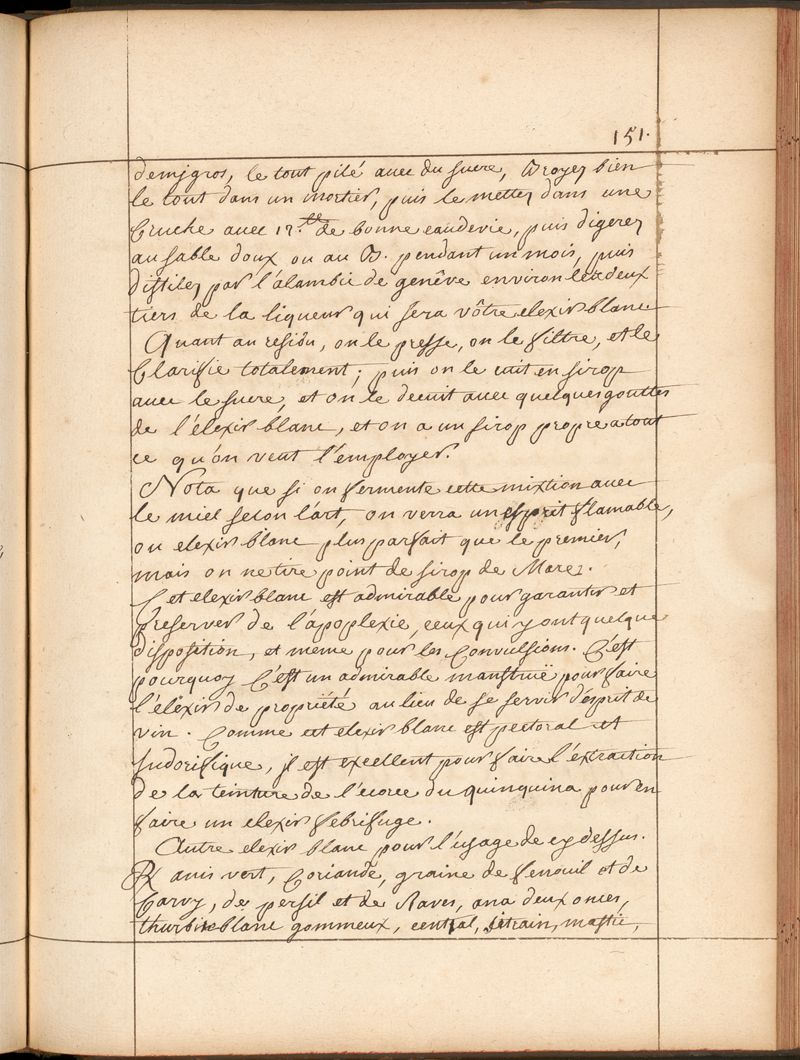 151.
demÿgros, le tout pilé avec du sucre, Broyez bien
le tout dans un mortier, puis le mettez dans une
Cruche avec 12.tt de bonne eaudevie, puis digerez
au sable doux ou au B. pendant un mois, puis
distilez par l'alambic de genêve environ les deux
tiers de la liqueur qui sera vôtre elexir blanc
Quant au residu, on le presse, on le filtre, et le
Clarifie totalement; puis on le cuit en sirop
avec le sucre, et on le decuit avec quelques gouttes
de l'élexir blanc, et on a un sirop propre a tout
ce qu'on veut l'employer.
Nota que si on fermente cette mixtion avec
le miel selon l'art, on verra un esprit flamable,
ou elexir blanc plus parfait que le premier,
mais on ne tire point de sirop de Marc.
Cet elexir blanc est admirable pour garantir et
preserver de l'apoplexie, ceux qui y ont quelque
disposition, et meme pour les Convulsions. C'est
pourquoy C'est un admirable manstruë pour faire
l'élexir de propriété au lieu de se servir d'esprit de
vin. Comme cet elexir blanc est pectoral et
sudorifique, jl est excellent pour faire l'extraction
de la teinture de l'ecorce du quinquina pour en
faire un elexir febrifuge.
Autre elexir blanc pour l'usage de cy dessus.
℞ anis vert, Coriande, graine de fenouil et de
Carvy, de persil et de Raves, ana deux onces,
thurbit blanc gommeux, mastic,